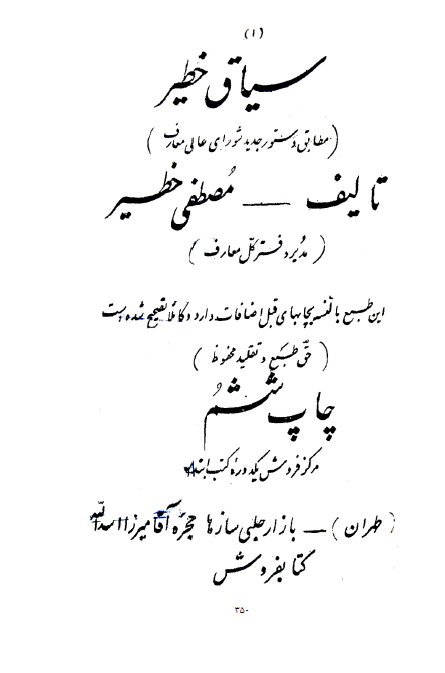 (۱)
سیاق خطیر
(مطابق دستور جدید شورای عالی معارف)
تألیف — مُصطفی خطیر
(مدیر دفتر کلّ معارف)
این طبع بالنسبه بچاپهای قبل اضافات دارد و کاملا تصحیح شده است
(حقّ طبع و تقلید محفوظ)
چاپ ششم
مرکز فروش یکدوره کتب
(طهران) — بازار حلبی سازها حجره آقا میرزا اسدالله
کتابفروش
۳۵۰